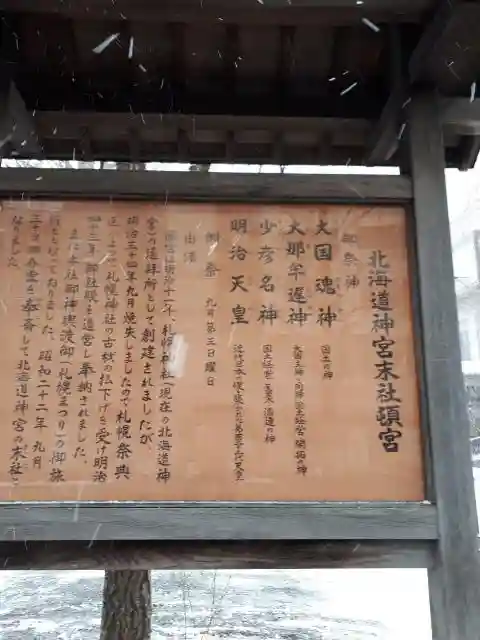 北海道神宮末社頓宮
御祭神
大国魂神 国土の神
大那牟遅神 国土経営 開拓の神
少彦名神 国土経営 医薬 酒造の神
明治天皇
例祭 九月第三日曜日
由緒
頓宮は明治十一年、札幌神社（現在の北海道神
宮）の遙拝所として創建されましたが、
明治三十四年九月焼失しましたので札幌祭典
区によって札幌神社の古材の払下げを受け明治
四十二年御社殿を造営し奉納されました。
また本社御神輿渡御（札幌まつり）の御旅
所となっておりました。昭和二十二年九月
斎して北海道神宮の末社と
なりました